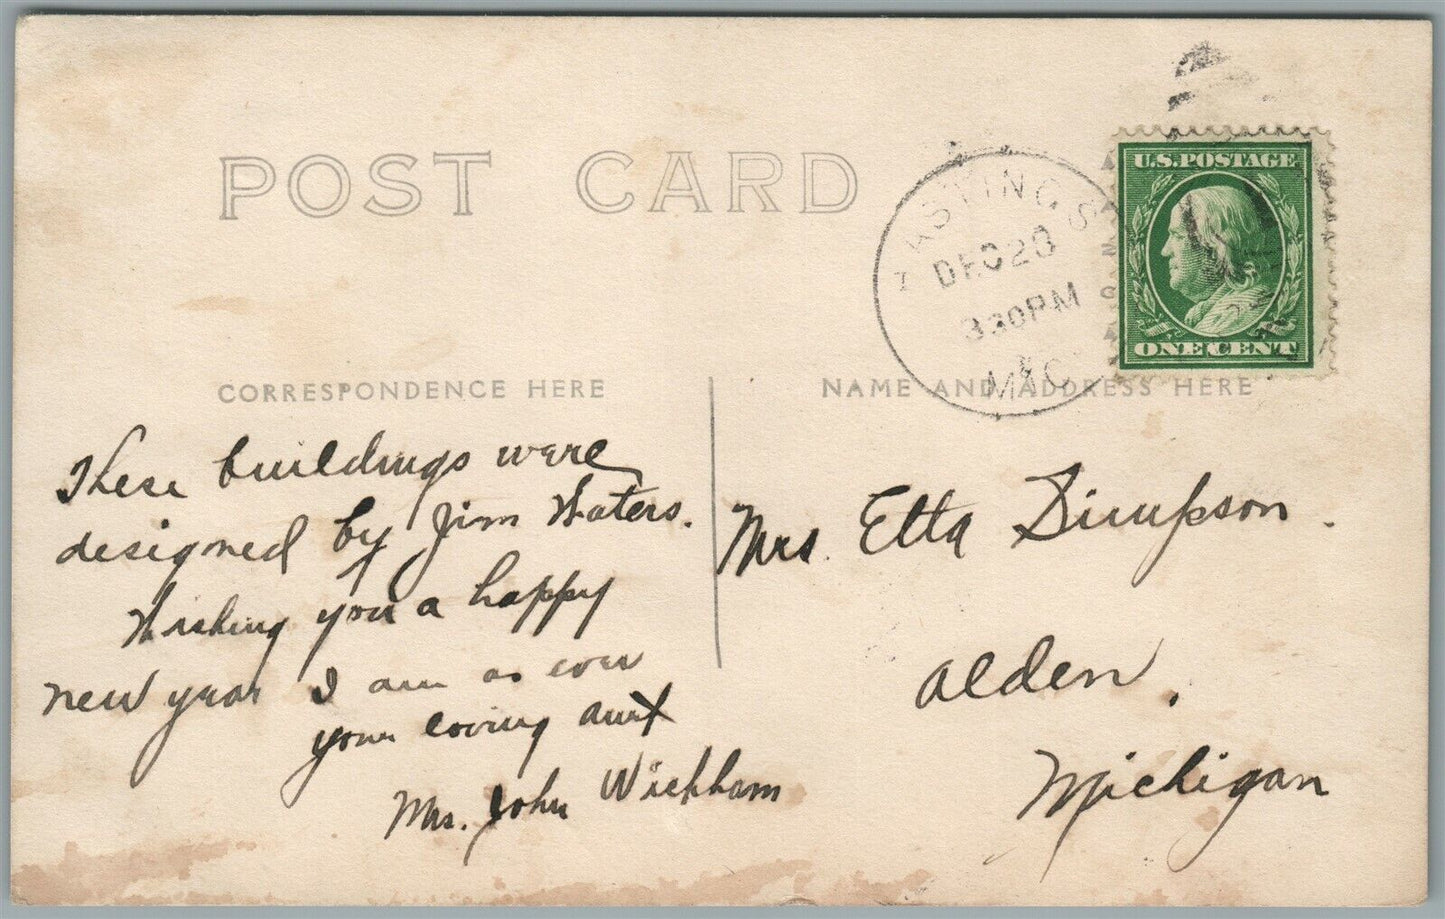 POST CARD
HASTINGS
DEC 20
3 30 PM
MICH
U.S. POSTAGE
ONE CENT
CORRESPONDENCE HERE
NAME AND ADDRESS HERE
These buildings were
designed by Jim Waters.
Wishing you a happy
new year I am as ever
your loving aunt
Mrs. John Wickham
Mrs. Etta Simpson.
Alden,
Michigan